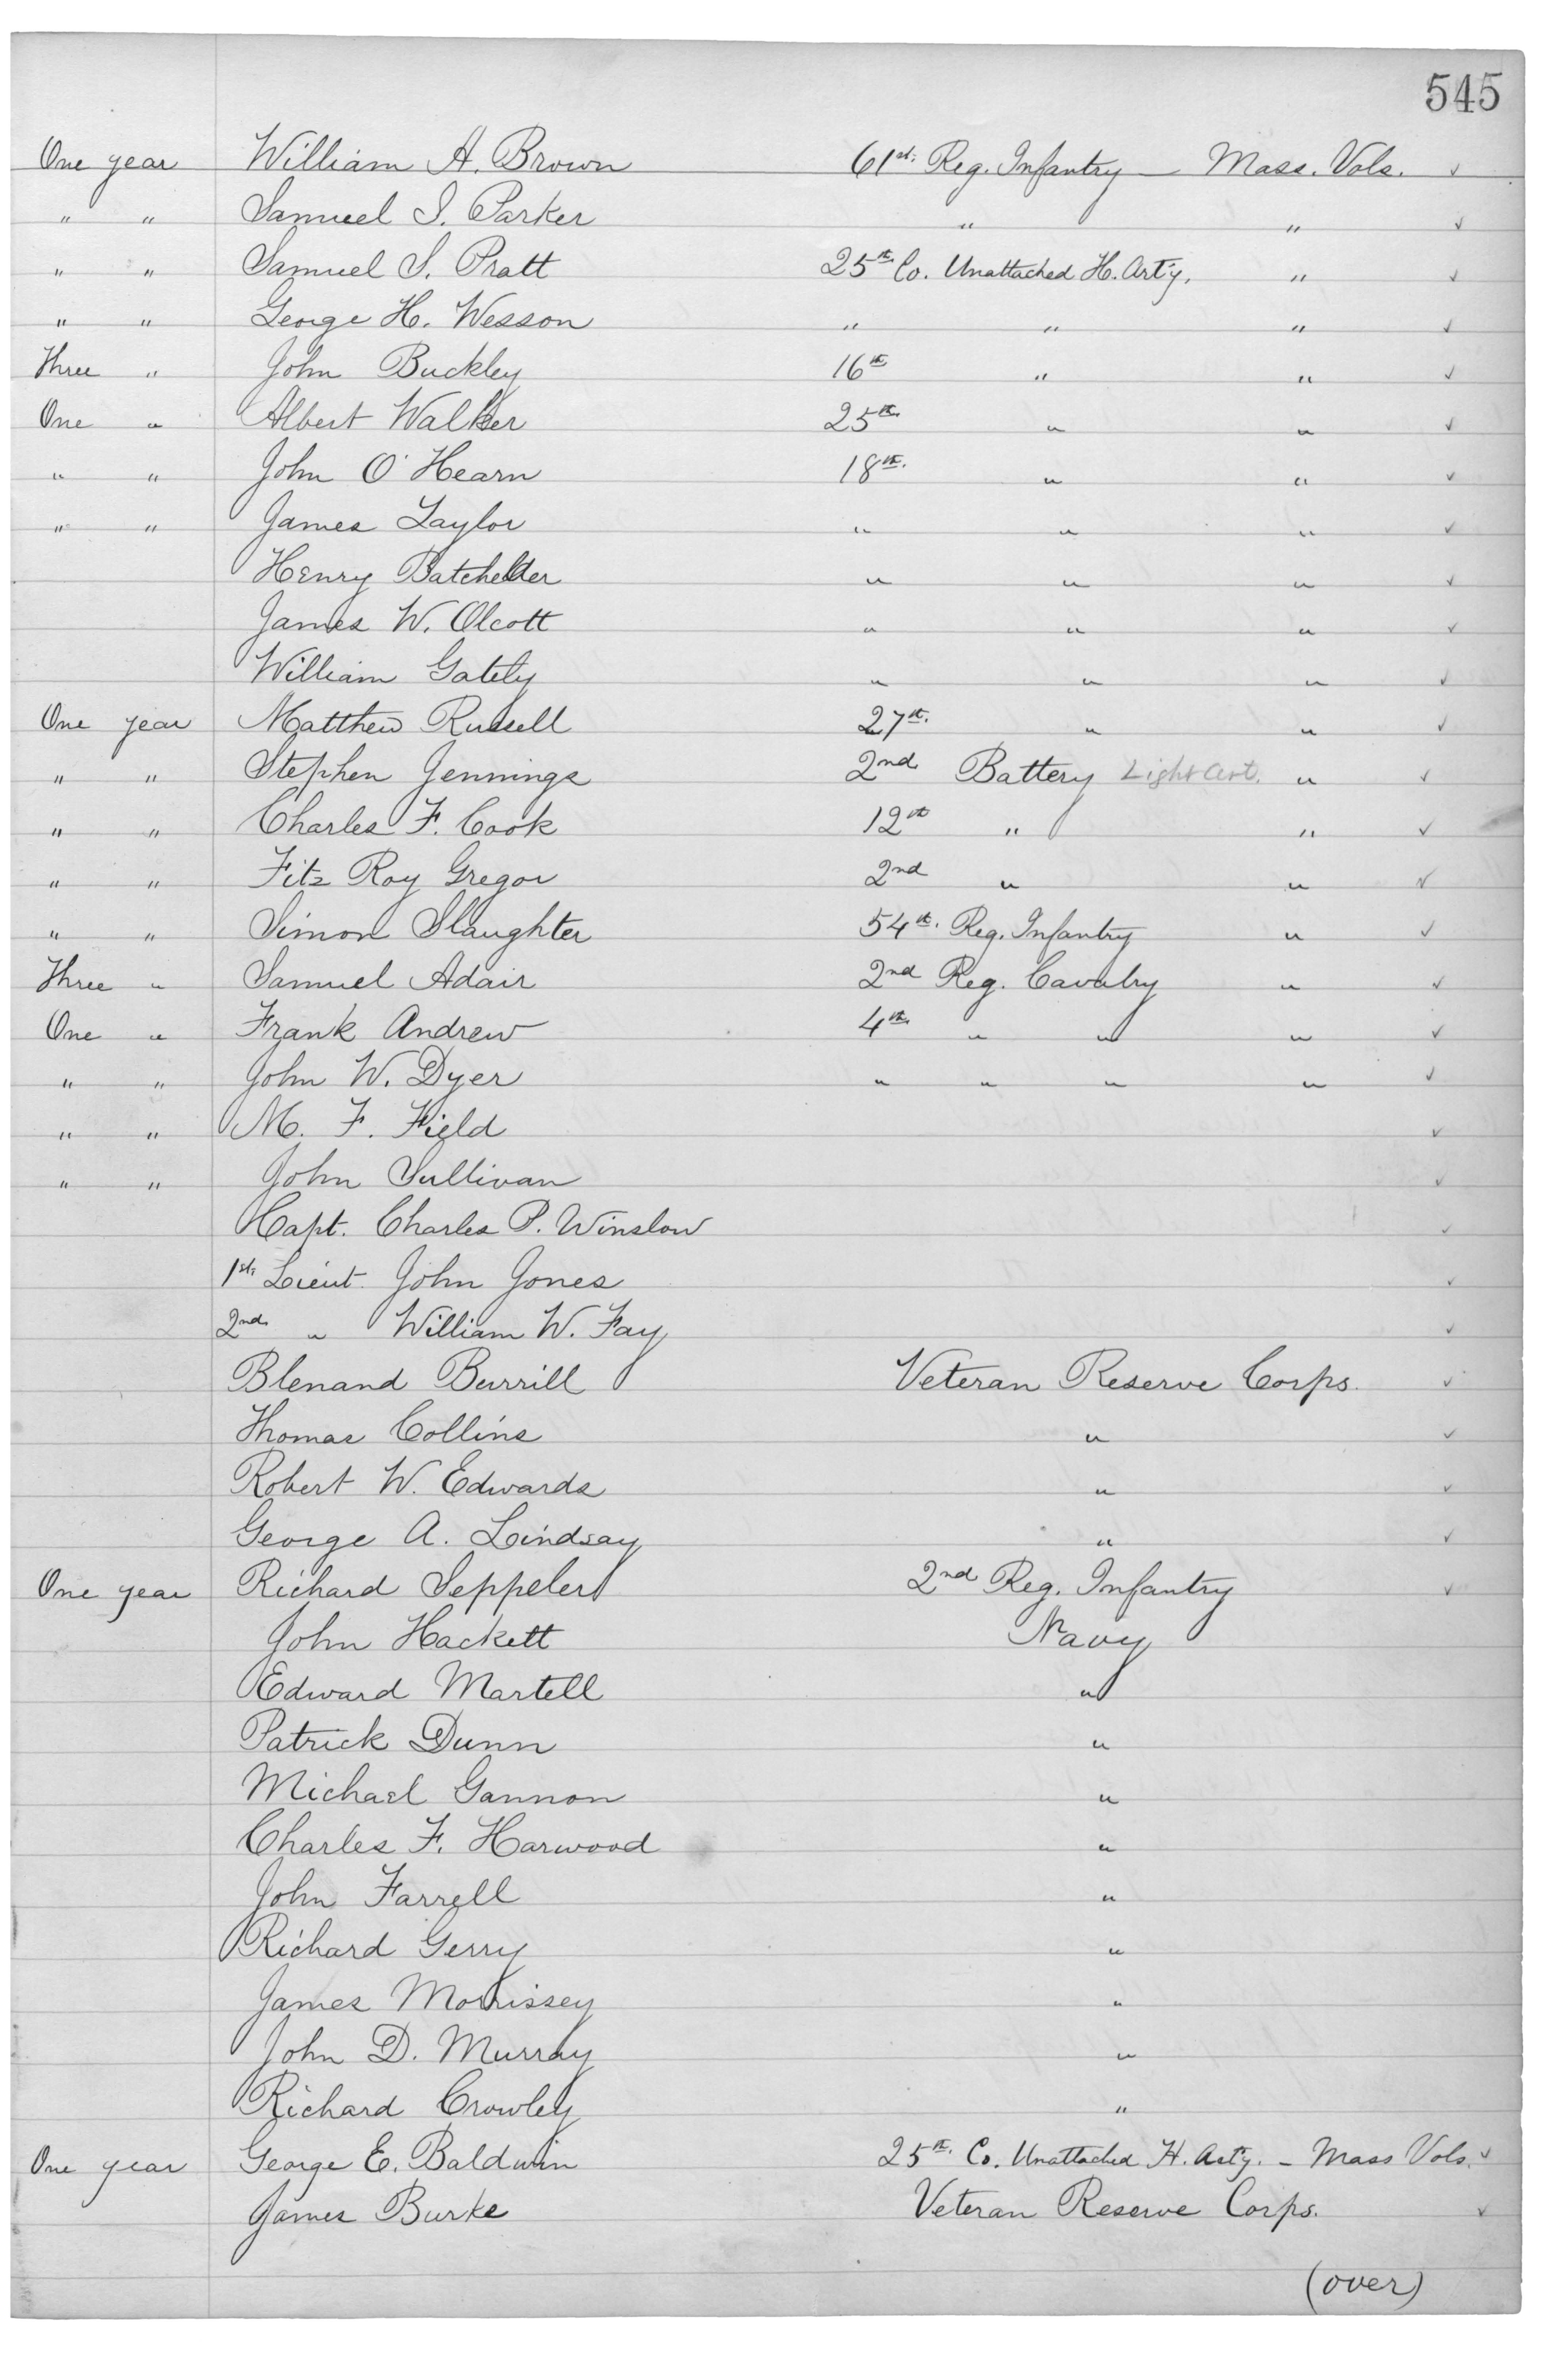 545
One year William A. Brown 61st. Reg. Infantry — Mass. Vols. ✓
" " Samuel I. Parker " " ✓
" " Samuel S. Pratt 25th Co. Unattached H. Art'y. " ✓
" " George H. Wesson " " " ✓
Three " John Buckley 16th " " ✓
One " Albert Walker 25th " " ✓
" " John O'Hearn 18th. " " ✓
" " James Taylor " " " ✓
Henry Batchelder " " " ✓
James W. Olcott " " " ✓
William Gately " " " ✓
One year Matthew Russell 27th. " " ✓
" " Stephen Jennings 2nd. Battery Light Art. " ✓
" " Charles F. Cook 12th " " ✓
" " Fitz Roy Gregor 2nd " " ✓
" " Simon Slaughter 54th. Reg. Infantry " ✓
Three " Samuel Adair 2nd Reg. Cavalry " ✓
One " Frank Andrew 4th. " " " ✓
" " John W. Dyer " " " " ✓
" " M. F. Field ✓
" " John Sullivan ✓
Capt. Charles P. Winslow ✓
1st. Lieut. John Jones ✓
2nd. " William W. Fay ✓
Blenand Burrill Veteran Reserve Corps. ✓
Thomas Collins " ✓
Robert W. Edwards " ✓
George A. Lindsay " ✓
One year Richard Seppeler 2nd Reg. Infantry ✓
John Hackett Navy
Edward Martell "
Patrick Dunn "
Michael Gannon "
Charles F. Harwood "
John Farrell "
Richard Gerry "
James Morrissey "
John D. Murray "
Richard Crowley "
One year George E. Baldwin 25th. Co. Unattached H. Arty. – Mass Vols. ✓
James Burke Veteran Reserve Corps. ✓
(over)